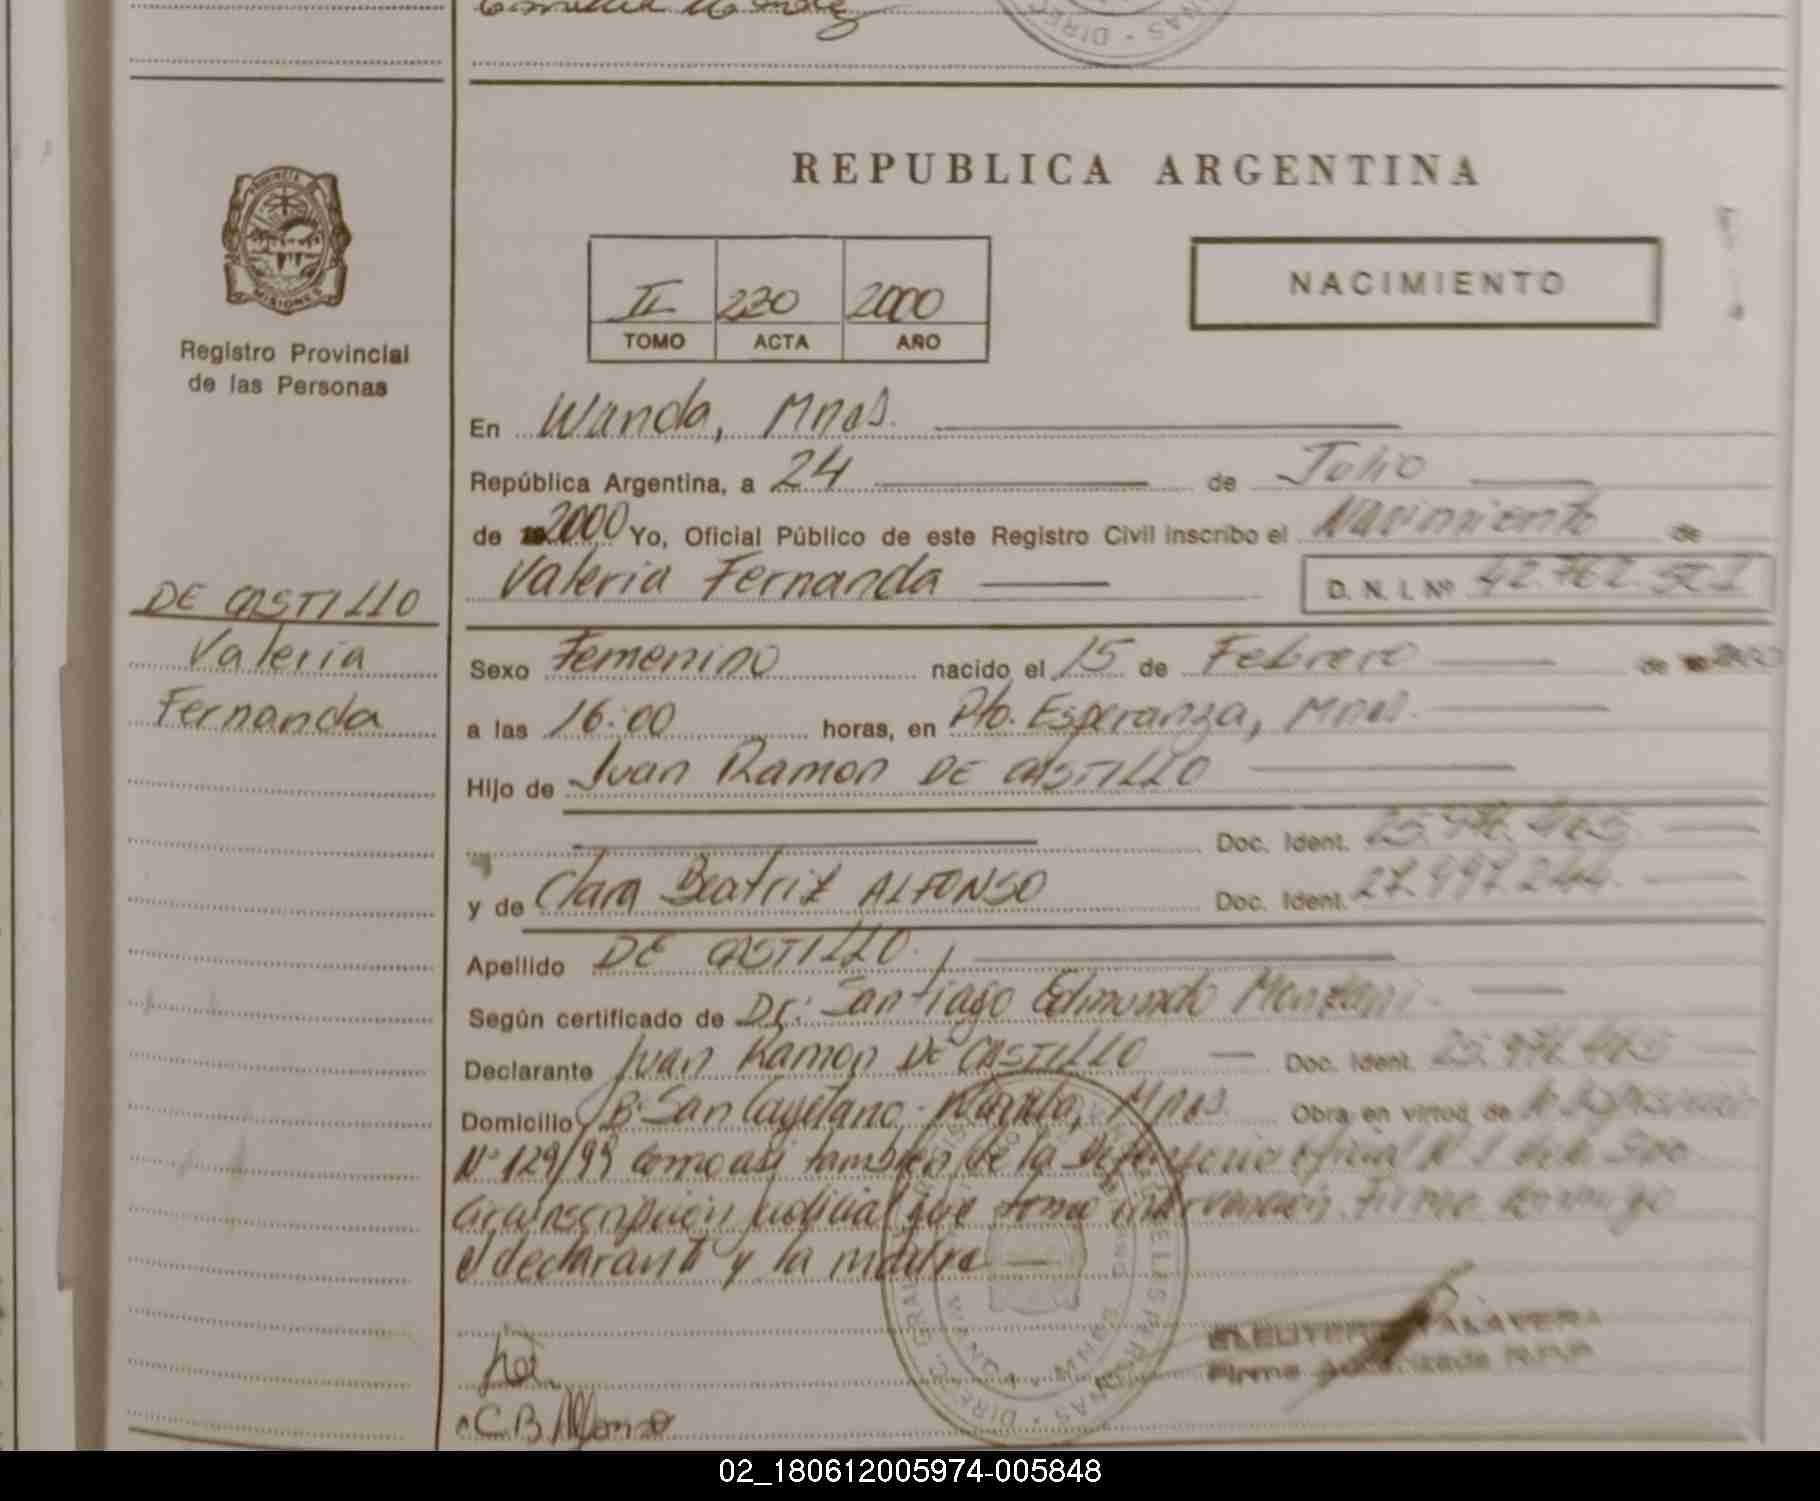 REPUBLICA ARGENTINA
PROVINCIA DE MISIONES
Registro Provincial
de las Personas
II 230 2000
TOMO ACTA AÑO
NACIMIENTO
En Wanda, Mnes.
República Argentina, a 24 de Julio
de 2000 Yo, Oficial Público de este Registro Civil inscribo el Nacimiento de
Valeria Fernanda D. N. I. Nº 42.762.
DE CASTILLO
Valeria
Fernanda
Sexo Femenino nacido el 15 de Febrero de
a las 16:00 horas, en Pto. Esperanza, Mnes.
Hijo de Juan Ramon DE CASTILLO
Doc. Ident.
y de Clara Beatriz ALFONSO Doc. Ident. 27.997.244
Apellido DE CASTILLO.
Según certificado de Dr: Santiago Edmundo
Declarante Juan Ramon DE CASTILLO Doc. Ident.
Domicilio Bº San Cayetano - Wanda, Mnes. Obra en virtud de
Nº 129/99 como asi tambien de la Defensoria Oficial
Circunscripcion Judicial que tomo intervencion. Firma conmigo
el declarante y la madre
ELEUTERIO TALAVERA
Firma Autorizada
C.B Alfonso
02_180612005974-005848